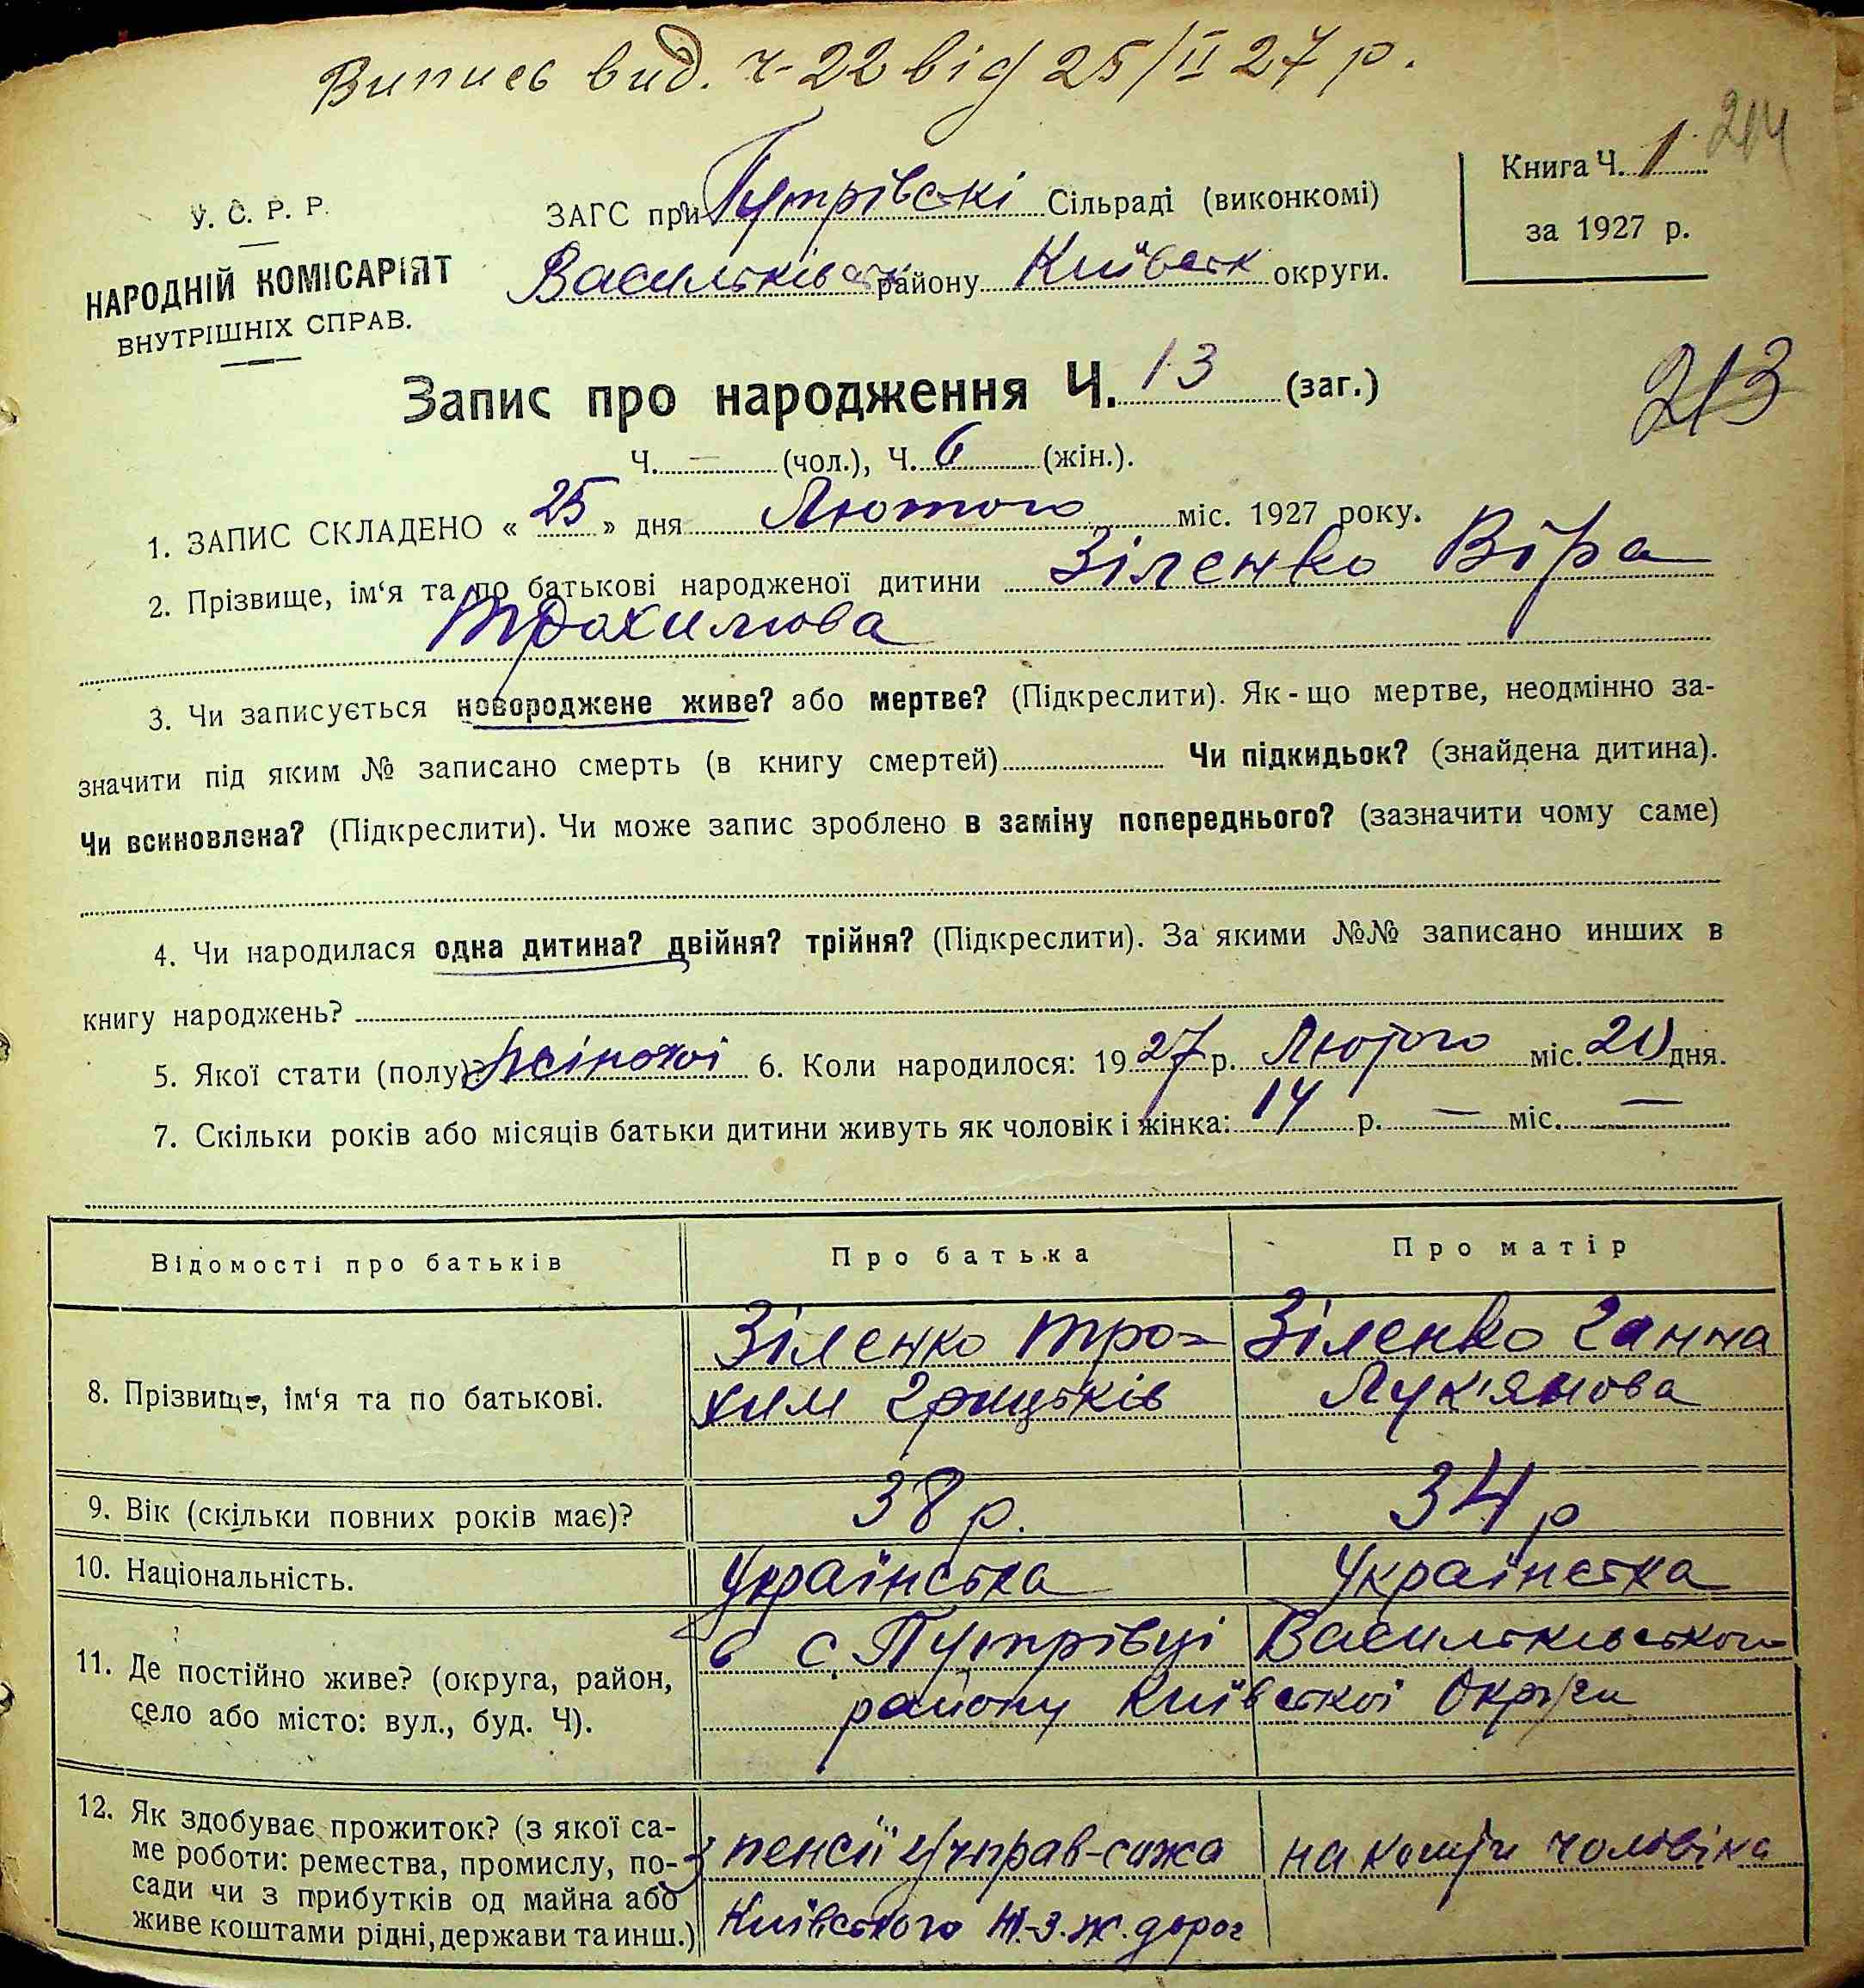 Випись вид. ч-22 від 25/II 27 р.
214
Книга Ч. 1
за 1927 р.
У. С. Р. Р.
НАРОДНІЙ КОМІСАРІЯТ
ВНУТРІШНІХ СПРАВ.
ЗАГС при Путрівскі Сільраді (виконкомі)
Васильківськ району Київськ округи.
213
Запис про народження Ч. 13 (заг.)
Ч. — (чол.), Ч. 6 (жін.).
1. ЗАПИС СКЛАДЕНО « 25 » дня Лютого міс. 1927 року.
2. Прізвище, ім‘я та по батькові народженої дитини Зіленко Віра
Трохимова
3. Чи записується новороджене живе? або мертве? (Підкреслити). Як-що мертве, неодмінно за-
значити під яким № записано смерть (в книгу смертей) Чи підкидьок? (знайдена дитина).
Чи всиновлена? (Підкреслити). Чи може запис зроблено в заміну попереднього? (зазначити чому саме)
4. Чи народилася одна дитина? двійня? трійня? (Підкреслити). За якими №№ записано инших в
книгу народжень?
5. Якої стати (полу)? жіночої 6. Коли народилося: 1927 р. Лютого міс. 20 дня.
7. Скільки років або місяців батьки дитини живуть як чоловік і жінка: 14 р. — міс. —
Відомості про батьків Про батька Про матір
8. Прізвище, ім‘я та по батькові. Зіленко Тро= Зіленко Ганна
хим Грицьків Лук'янова
9. Вік (скільки повних років має)? 38 р. 34 р
10. Національність. Українська Українська
11. Де постійно живе? (округа, район, в с. Путрівці Васильківського
село або місто: вул., буд. Ч). району Київської Округи
12. Як здобуває прожиток? (з якої са-
ме роботи: ремества, промислу, по- З пенсії на кошти чоловіка
сади чи з прибутків од майна або
живе коштами рідні, держави та инш.) Київського дорог